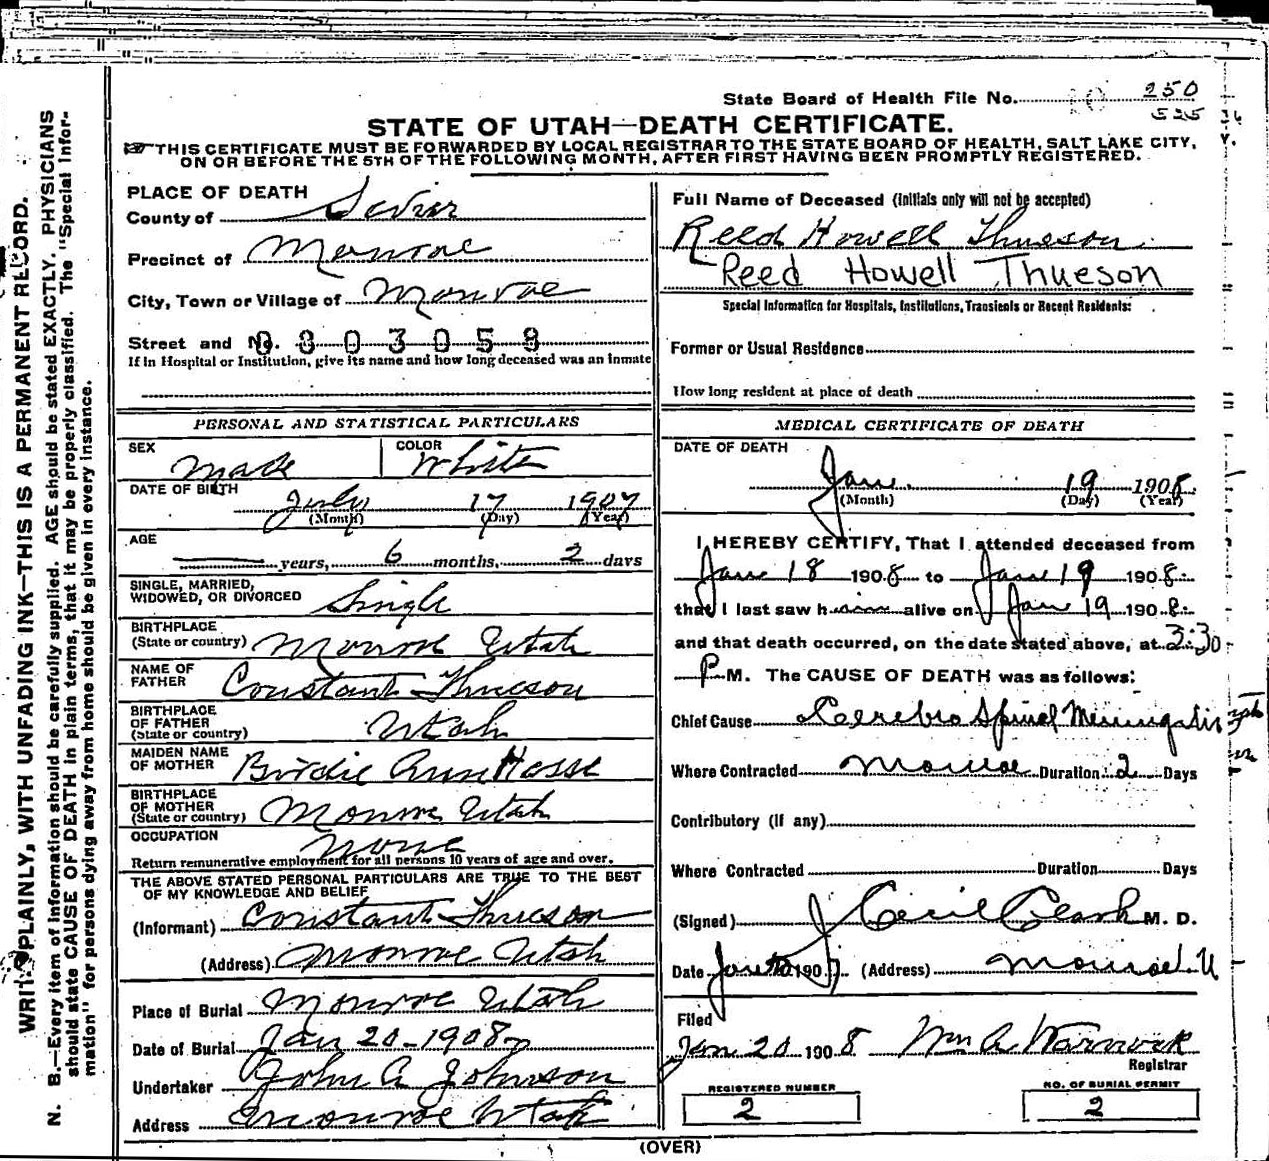 State Board of Health File No. 250
525
STATE OF UTAH—DEATH CERTIFICATE.
THIS CERTIFICATE MUST BE FORWARDED BY LOCAL REGISTRAR TO THE STATE BOARD OF HEALTH, SALT LAKE CITY,
ON OR BEFORE THE 5TH OF THE FOLLOWING MONTH, AFTER FIRST HAVING BEEN PROMPTLY REGISTERED.
WRITE PLAINLY, WITH UNFADING INK—THIS IS A PERMANENT RECORD.
N. B.—Every item of information should be carefully supplied. AGE should be stated EXACTLY. PHYSICIANS
should state CAUSE OF DEATH in plain terms, that it may be properly classified. The "Special Infor-
mation" for persons dying away from home should be given in every instance.
PLACE OF DEATH
County of Sevier
Precinct of Monroe
City, Town or Village of Monroe
Street and No. 303059
If in Hospital or Institution, give its name and how long deceased was an inmate
PERSONAL AND STATISTICAL PARTICULARS
SEX Male COLOR White
DATE OF BIRTH July 17 1907
(Month) (Day) (Year)
AGE years, 6 months, 2 days
SINGLE, MARRIED,
WIDOWED, OR DIVORCED Single
BIRTHPLACE
(State or country) Monroe Utah
NAME OF
FATHER Constant Thueson
BIRTHPLACE
OF FATHER
(State or country) Utah
MAIDEN NAME
OF MOTHER Birdie Ann
BIRTHPLACE
OF MOTHER
(State or country) Monroe Utah
OCCUPATION None
Return remunerative employment for all persons 10 years of age and over.
THE ABOVE STATED PERSONAL PARTICULARS ARE TRUE TO THE BEST
OF MY KNOWLEDGE AND BELIEF
(Informant) Constant Thueson
(Address) Monroe Utah
Place of Burial Monroe Utah
Date of Burial Jan 20-1908
Undertaker John A Johnson
Address Monroe Utah
Full Name of Deceased (initials only will not be accepted)
Reed Howell Thueson.
Reed Howell Thueson
Special Information for Hospitals, Institutions, Transients or Recent Residents:
Former or Usual Residence
How long resident at place of death
MEDICAL CERTIFICATE OF DEATH
DATE OF DEATH
Jan. 19 1908
(Month) (Day) (Year)
I HEREBY CERTIFY, That I attended deceased from
Jan 18 1908 to Jan 19 1908
that I last saw him alive on Jan 19 1908
and that death occurred, on the date stated above, at 3:30
P M. The CAUSE OF DEATH was as follows:
Chief Cause Cerebro Spinal Meningitis
Where Contracted Monroe Duration 2 Days
Contributory (if any)
Where Contracted Duration Days
(Signed) J Cecil Clark M. D.
Date Jan 190 (Address) Monroe U
Filed
Jan 20 1908 Wm A Warnock
Registrar
REGISTERED NUMBER
2
NO. OF BURIAL PERMIT
2
(OVER)